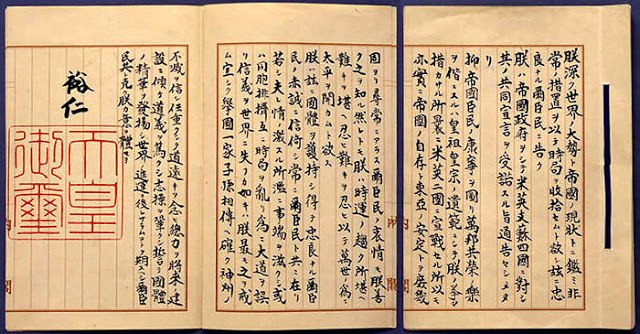 朕深ク世界ノ大勢ト帝國ノ現状トニ鑑ミ非
常ノ措置ヲ以テ時局ヲ收拾セムト欲シ茲ニ忠
良ナル爾臣民ニ告ク
朕ハ帝國政府ヲシテ米英支蘇四國ニ對シ
其ノ共同宣言ヲ受諾スル旨通告セシメタリ
抑帝國臣民ノ康寧ヲ圖リ萬邦共榮ノ樂
ヲ偕ニスルハ皇祖皇宗ノ遺範ニシテ朕ノ拳々
措カサル所曩ニ米英二國ニ宣戰セル所以モ
亦實ニ帝國ノ自存ト東亞ノ安定トヲ庶幾
内閣
固ヨリ尋常ニアラス爾臣民ノ衷情モ朕善
ク之ヲ知ル然レトモ朕ハ時運ノ趨ク所堪ヘ
難キヲ堪ヘ忍ヒ難キヲ忍ヒ以テ萬世ノ爲ニ
太平ヲ開カムト欲ス
朕ハ茲ニ國體ヲ護持シ得テ忠良ナル爾臣
民ノ赤誠ニ信倚シ常ニ爾臣民ト共ニ在リ
若シ夫レ情ノ激スル所濫ニ事端ヲ滋クシ或
ハ同胞排擠互ニ時局ヲ亂リ爲ニ大道ヲ誤
リ信義ヲ世界ニ失フカ如キハ朕最モ之ヲ戒
ム宜シク擧國一家子孫相傳ヘ確ク神州ノ
不滅ヲ信シ任重クシテ道遠キヲ念ヒ總力ヲ將來ノ建
設ニ傾ケ道義ヲ篤クシ志操ヲ鞏クシ誓テ國體
ノ精華ヲ發揚シ世界ノ進運ニ後レサラムコトヲ期スヘシ爾臣
民其レ克ク朕カ意ヲ體セヨ
裕仁
天皇
御璽